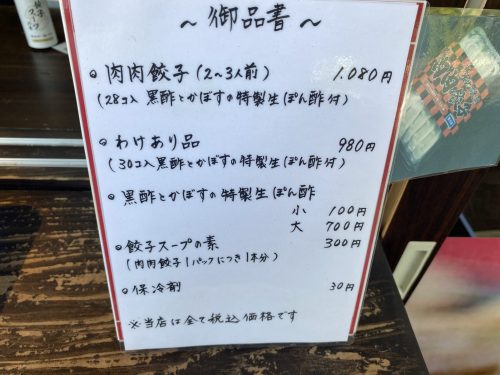 ～御品書～
◦ 肉肉餃子(2～3人前) 1.080円
(28コ入 黒酢とかぼすの特製生ぽん酢付)
◦ わけあり品 980円
(30コ入 黒酢とかぼすの特製生ぽん酢付)
◦ 黒酢とかぼすの特製生ぽん酢
小 100円
大 700円
◦ 餃子スープの素 300円
(肉肉餃子1パックにつき1本分)
◦ 保冷剤 30円
※当店は全て税込価格です